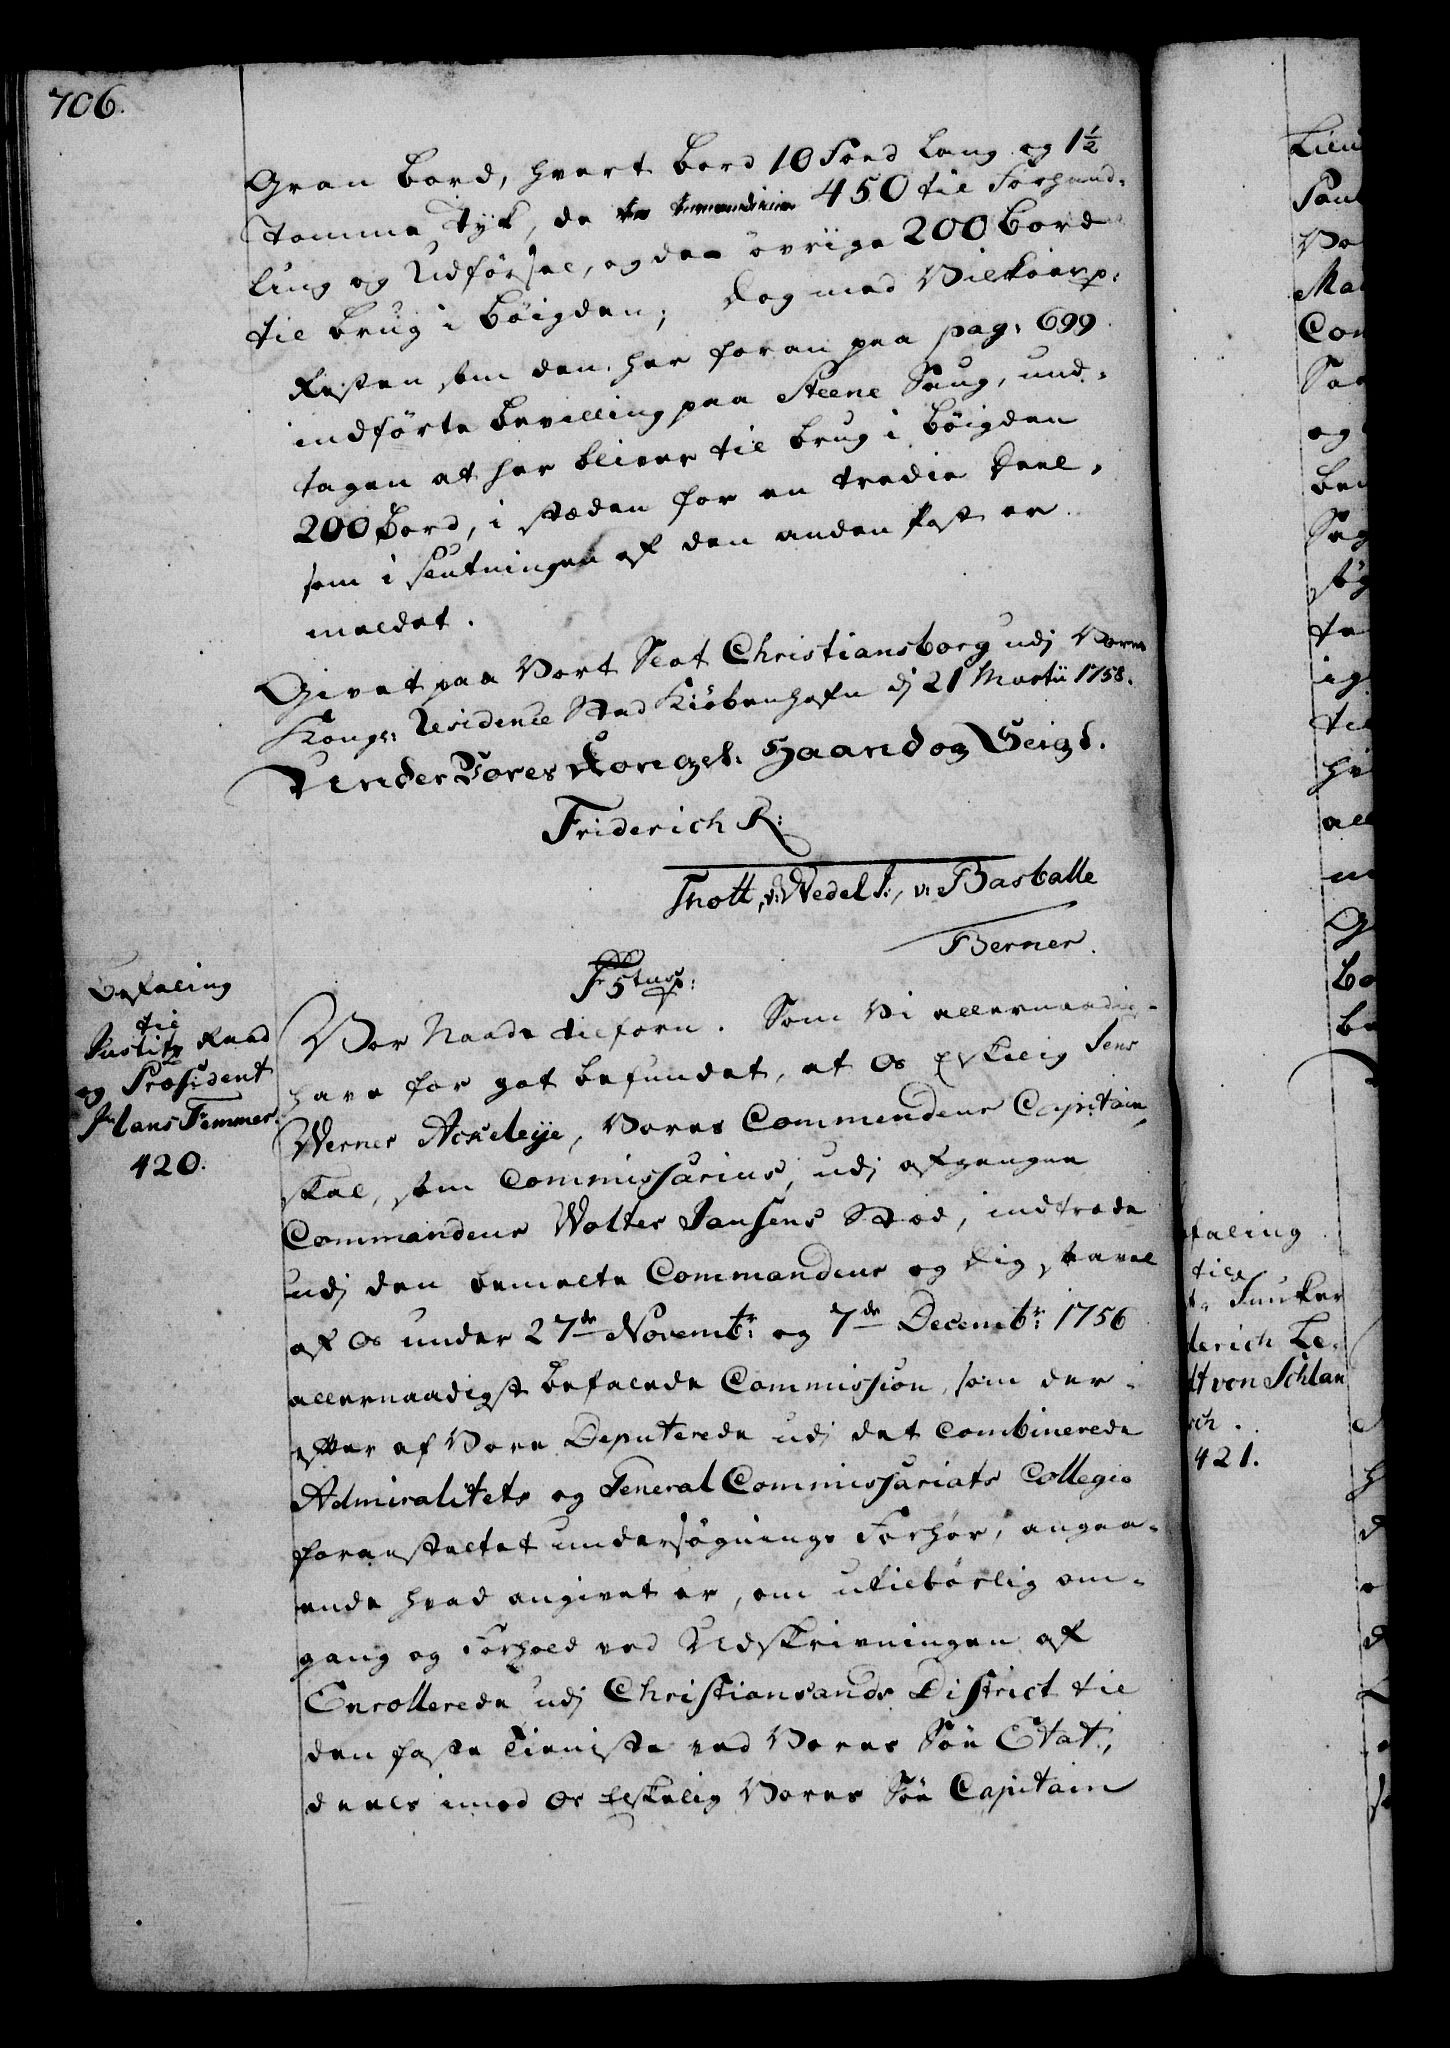 706.
Gran Bord, hvert Bord 10 Foed Lang og 1½
Tomme Tyk, de 450 til Forhand-
ling og Udförsel, og den övrige 200 Bord
til Brug i Böigden; Dog med Vilkaar p:
Resten som den her foran paa pag: 699
indförte Bevilling paa Steene Saug, und-
tagen at her bliver til Brug i Böigden
200 Bord, i stæden for en tredie Deel,
som i Slutningen af den anden Post er
meldet.
Givet paa Vort Slot Christiansborg udj Vores
Kongl: Residence Stad Kiöbenhafn dj 21 Martii 1758.
Under Vores Kongel: Haand og Seigl.
Friderich R:
Thott, v: Wedel F:, v: Basballe
Berner.
Befaling
til
Justitz Raad
og Præsident
Hans Femmer.
420.
F 5tus p:
Vor Naade tilforn. Som Vi allernaadig-
have for got befundet, at Os Elskelig Jens
Werner Ackeleye, Vores Commendeur Capitain,
skal, som Commissarius, udj afgangne
Commandeur Wolter Jansens Stæd, indtræde
udj den bemelte Commandeur og Dig, saavel
af Os under 27de Novembr: og 7de Decembr: 1756
allernaadigst befalede Commission, som der-
efter af Vore Deputerede udj det combinerede
Admiralitets og General Commissariats Collegio
foranstaltet undersögnings Forhör, angaa-
ende hvad angivet er, om utilbörlig om-
gang og Forhold ved Udskrivningen af
Enrollerede udj Christiansands District til
den faste Tieniste ved Vores Söe Etat,
deels imod Os Elskelig Vores Söe Capitain
faling
til
Junker
derich Le-
tt von Schlan
sch.
421.